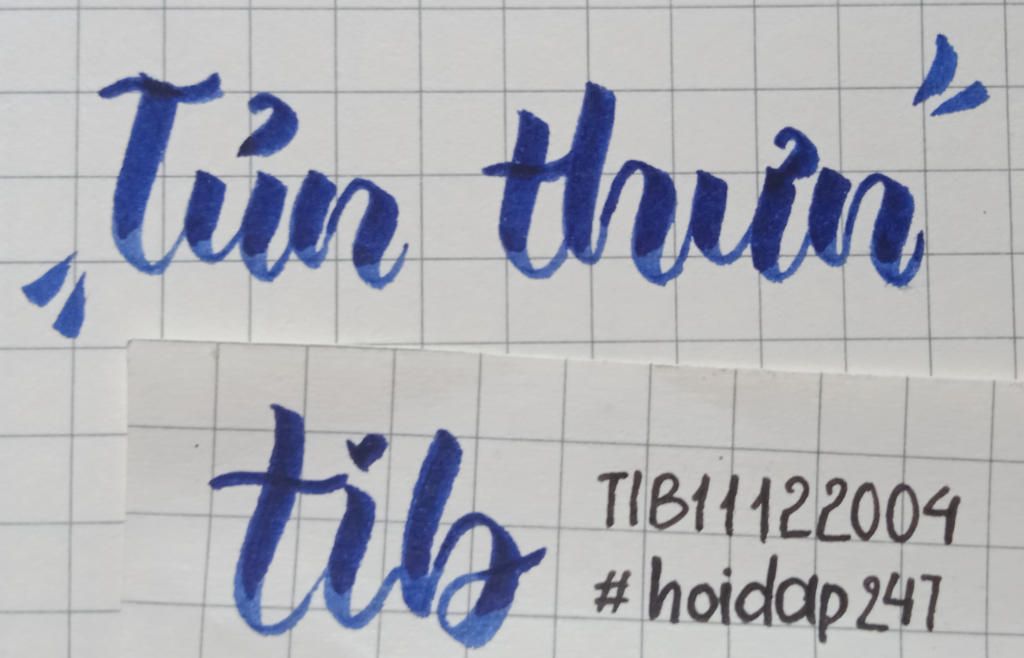 Tủn thửn
tib
TIB11122004
#hoidap247